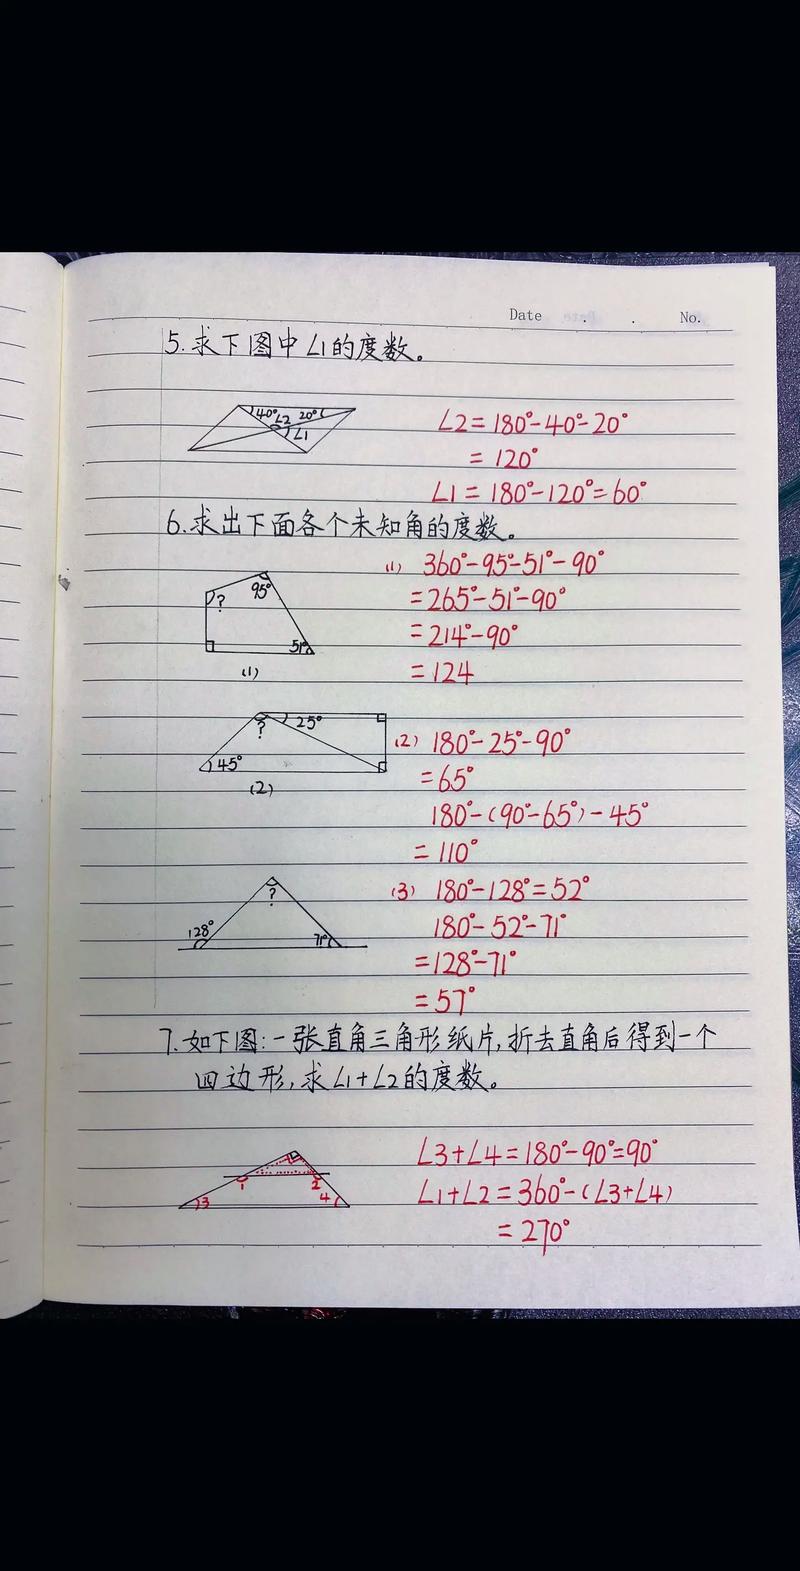 Date . . No.
5.求下图中∠1的度数。
40° ∠2 20° ∠1
∠2=180°-40°-20°
=120°
∠1=180°-120°=60°
6.求出下面各个未知角的度数。
95° ? 51°
(1)
(1) 360°-95°-51°-90°
=265°-51°-90°
=214°-90°
=124
? 25° 45°
(2)
(2) 180°-25°-90°
=65°
180°-(90°-65°)-45°
=110°
? 128° 71°
(3) 180°-128°=52°
180°-52°-71°
=128°-71°
=57°
7.如下图:一张直角三角形纸片,折去直角后得到一个
四边形,求∠1+∠2的度数。
1 2 3 4
∠3+∠4=180°-90°=90°
∠1+∠2=360°-(∠3+∠4)
=270°